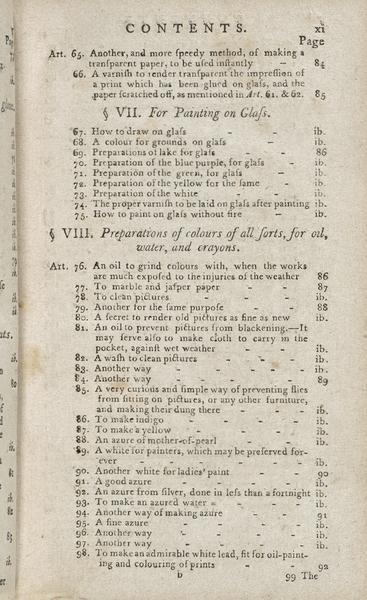 CONTENTS. xi
Page
Art. 65. Another, and more ſpeedy method, of making a
tranſparent paper, to be uſed inſtantly – 84
66. A varniſh to render tranſparent the impreſſion of
a print which has been glued on glaſs, and the
paper ſcratched off, as mentioned in Art. 61. & 62. 85
§ VII. For Painting on Glaſs.
67. How to draw on glaſs - - ib.
68. A colour for grounds on glaſs - ib.
69. Preparations of lake for glaſs - 86
70. Preparation of the blue purple, for glaſs - ib.
71. Preparation of the green, for glaſs - ib.
72. Preparation of the yellow for the ſame - ib.
73. Preparation of the white - - ib.
74. The proper varniſh to be laid on glaſs after painting ib.
75. How to paint on glaſs without fire - ib.
§ VIII. Preparations of colours of all ſorts, for oil,
water, and crayons.
Art. 76. An oil to grind colours with, when the works
are much expoſed to the injuries of the weather 86
77. To marble and jaſper paper - 87
78. To clean pictures - - - ib.
79. Another for the ſame purpoſe - - 88
80. A ſecret to render old pictures as fine as new ib.
81. An oil to prevent pictures from blackening.—It
may ſerve alſo to make cloth to carry in the
pocket, againſt wet weather - - ib.
82. A waſh to clean pictures - - - ib.
83. Another way - - - - ib.
84. Another way - - - - 89
85. A very curious and ſimple way of preventing flies
from ſitting on pictures, or any other furniture,
and making their dung there - - ib.
86. To make indigo - - - - ib.
87. To make a yellow - - - - ib.
88. An azure of mother-of-pearl - - ib.
89. A white for painters, which may be preſerved for-
ever - - - - - ib.
90. Another white for ladies' paint - - 90
91. A good azure - - - - ib.
92. An azure from ſilver, done in leſs than a fortnight ib.
93. To make an azured water - - - ib.
94. Another way of making azure - - 91
95. A fine azure - - - - ib.
96. Another way - - - - ib.
97. Another way - - - - ib.
98. To make an admirable white lead, fit for oil-paint-
ing and colouring of prints - - 92
b 99 The